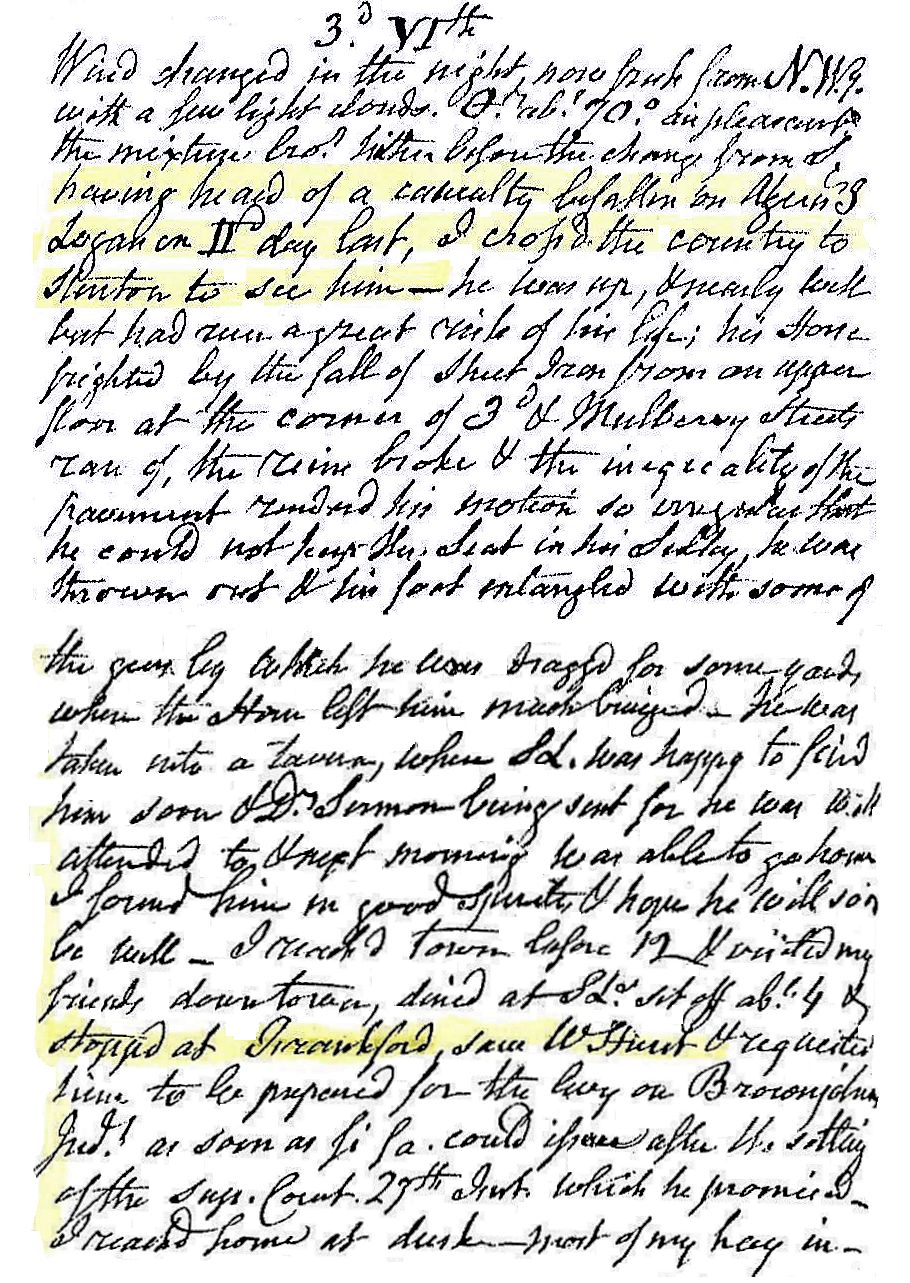 3.d VIth
Wind changed in the night, now fresh from N.W.
with a few light clouds. abt. 70.° air pleasant
the mixture bro.t hither before the change from S.
having heard of a casualty befallen on Algern.
Logan on IId day last, I cross'd the country to
Stenton to see him — he was up, & nearly well
but had run a great risk of his life; his Horse
frighted by the fall of Sheet Iron from an upper
floor at the corner of 3d & Mulberry Streets
ran of, the reins broke & the inequality of the
pavement rendered his motion so irregular that
he could not keep the Seat in his Sulky, he was
thrown out & his foot entangled with some of
the gear by which he was dragg'd for some yards
when the Horse left him much bruised — he was
taken into a tavern, where SL. was happy to find
him soon & Dr. Sermon being sent for he was well
attended to, & next morning was able to go home
I found him in good spirits, & hope he will soon
be well — I reach'd town before 12 & visited my
friends downtown, dined at SLs. sit off abt. 4 &
stopped at Frankford, saw W Hurst & requested
him to be prepared for the levy on Brownjohns
Jud.t as soon as fi fa. could issue after the setting
of the Sup. Court. 27th Inst. which he promised —
I reach'd home at dusk — most of my hay in —